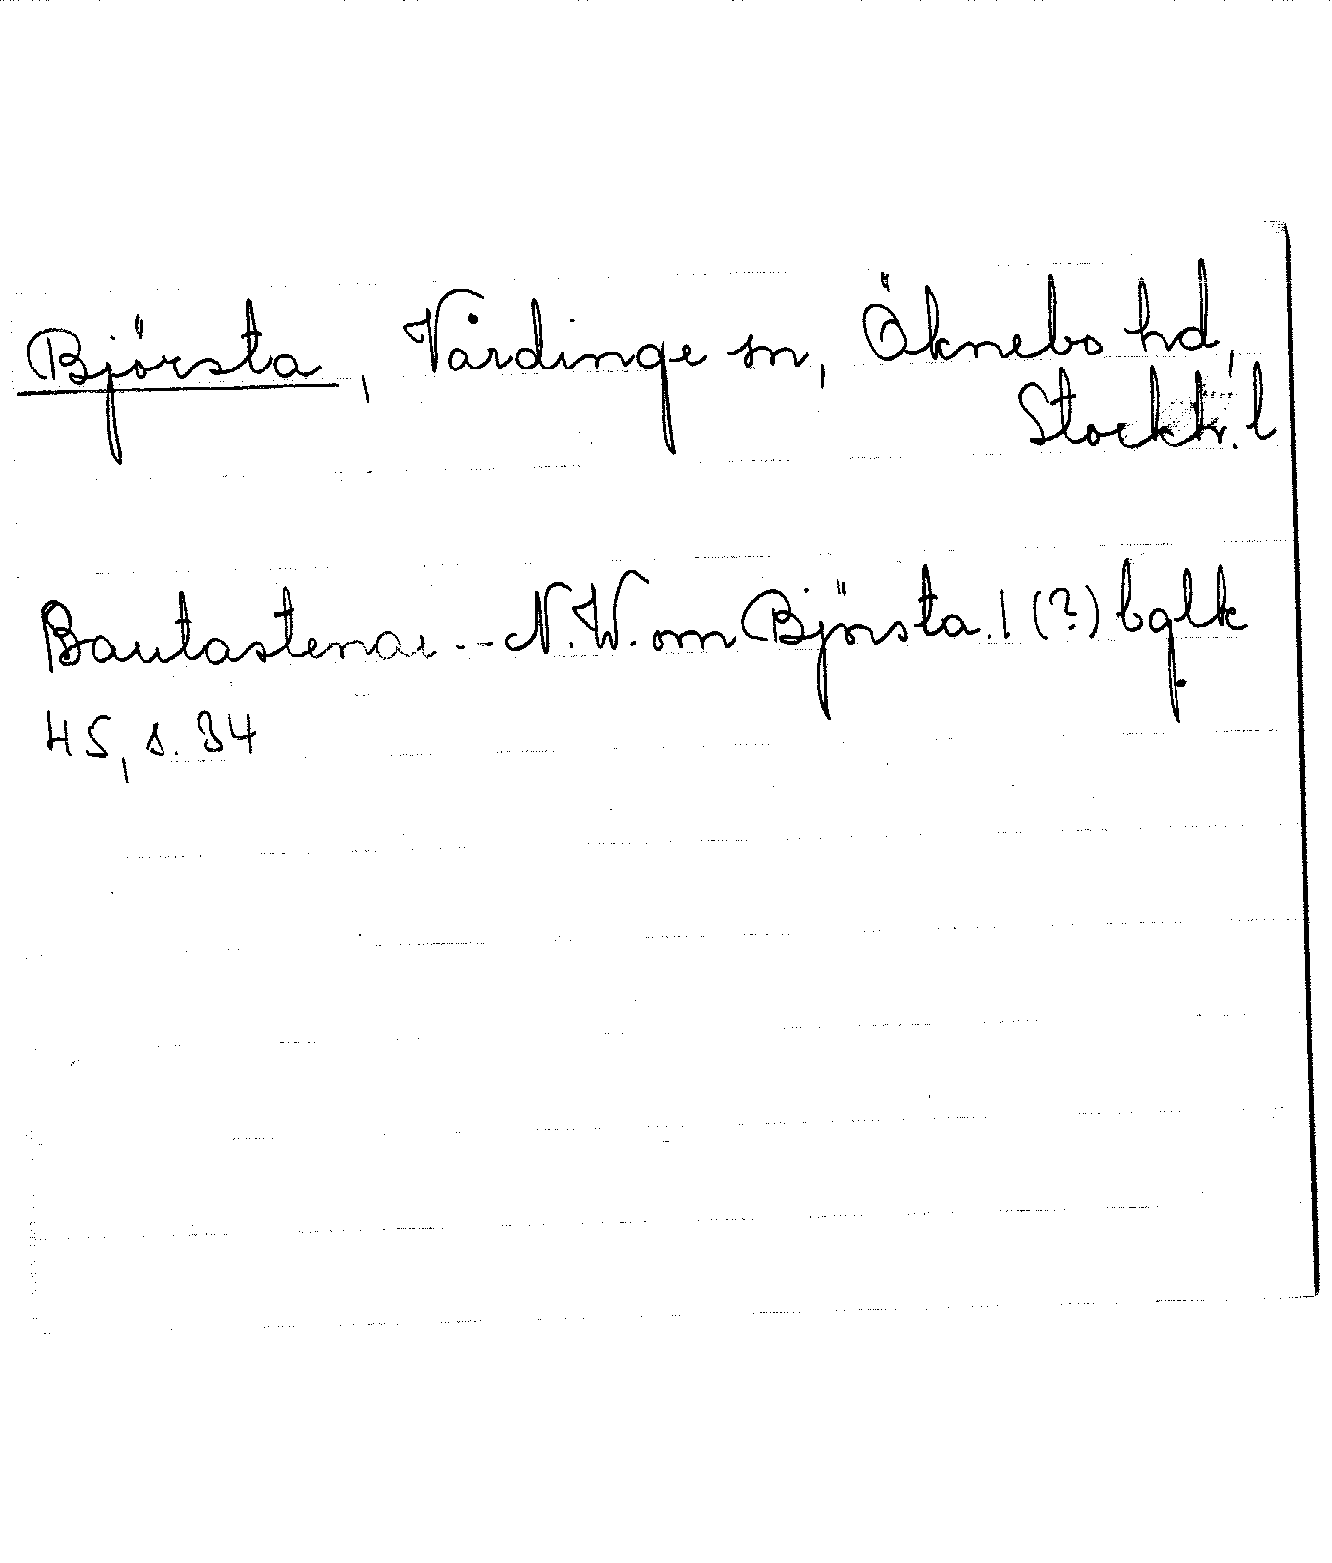 Björsta, Vårdinge sn, Öknebo hd,
Stockh. l
Bautastenar -- N.W. om Björsta. ! (?) bglk
45, s. 34